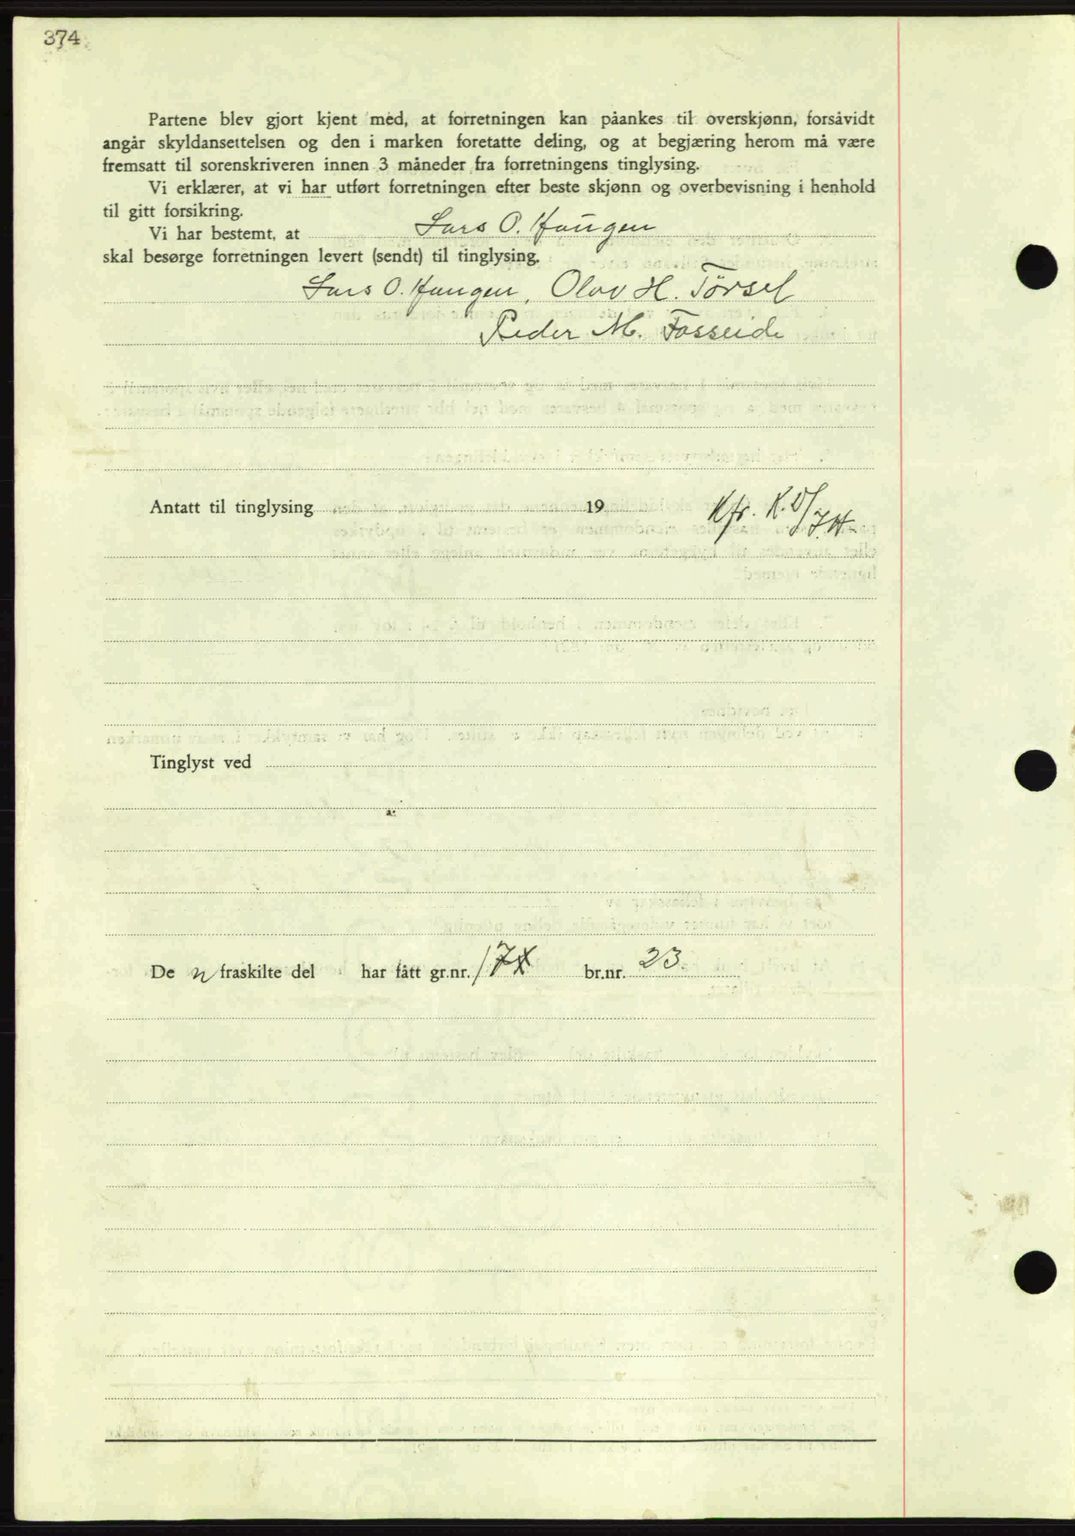 374
Partene blev gjort kjent med, at forretningen kan påankes til overskjønn, forsåvidt
angår skyldansettelsen og den i marken foretatte deling, og at begjæring herom må være
fremsatt til sorenskriveren innen 3 måneder fra forretningens tinglysing.
Vi erklærer, at vi har utført forretningen efter beste skjønn og overbevisning i henhold
til gitt forsikring.
Vi har bestemt, at Lars O. Haugen
skal besørge forretningen levert (sendt) til tinglysing.
Lars O. Haugen, Olav H. Tørset
Peder M. Fosseide
Antatt til tinglysing 19 Kfr. K.D/J.H.
Tinglyst ved
De n fraskilte del har fått gr.nr. 17 br.nr. 23